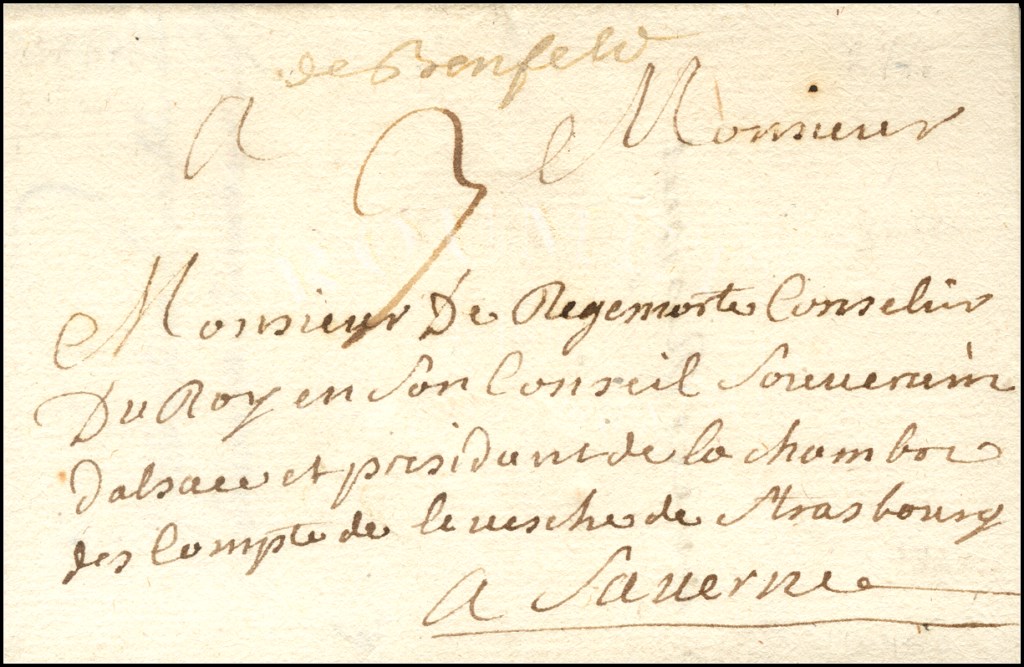 de Benfeld
A Monsieur
3
Monsieur De Regemorte Conselir
Du Roy en son Conseil Souuerain
dalsace et presidant de la chambre
des Compte de leuesche de Strasbourg
a Sauerne